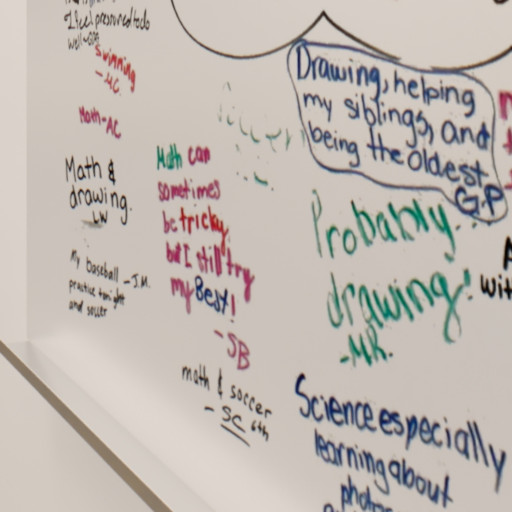 I feel pressured to do
well
Swimming
-MC
Math-AC
Math &
drawing
LW
My baseball -J.M.
practice tonight
and soccer
Math can
sometimes
be tricky
but I still try
my Best!
-SB
math & soccer
- SC 6th
Drawing, helping
my siblings, and
being the oldest
G.P
Probably
drawing!
-MR.
Science especially
learning about
wit